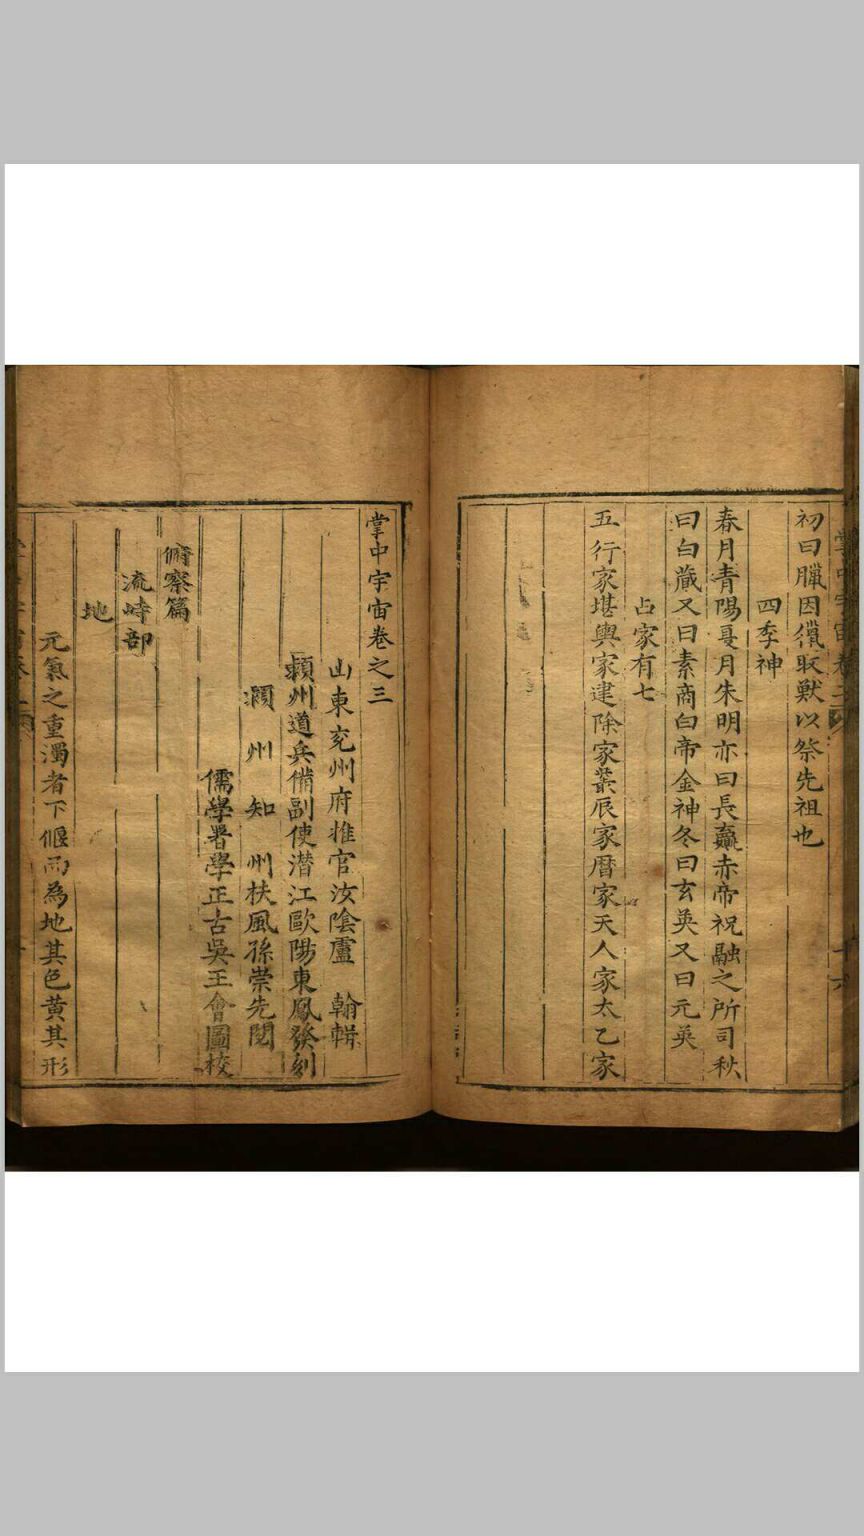 初曰臘因獵取獸以祭先祖也
四季神
春月青陽夏月朱明亦曰長贏赤帝祝融之所司秋
曰白藏又曰素商白帝金神冬曰玄英又曰元英
占家有七
五行家堪輿家建除家叢辰家曆家天人家太乙家
掌中宇宙卷之三
山東兖州府推官汝陰盧翰輯
潁州道兵備副使潛江歐陽東鳳發刻
潁州知州扶風孫崇先閱
儒學署學正古吳王會圖校
俯察篇
流峙部
地
元氣之重濁者下偃而為地其色黄其形